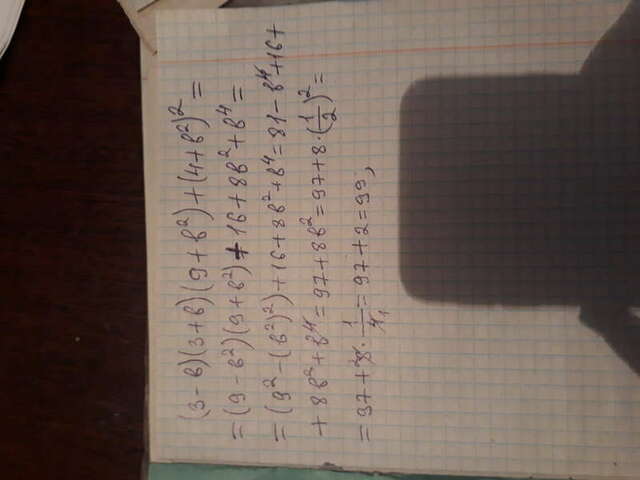 (3-в)(3+в)(9+в²)+(4+в²)²=
=(9-в²)(9+в²)+16+8в²+в⁴=
=(9²-(в²)²)+16+8в²+в⁴=81-в⁴+16+
+8в²+в⁴=97+8в²=97+8·(1/2)²=
=97+²8·1/4₁=97+2=99;